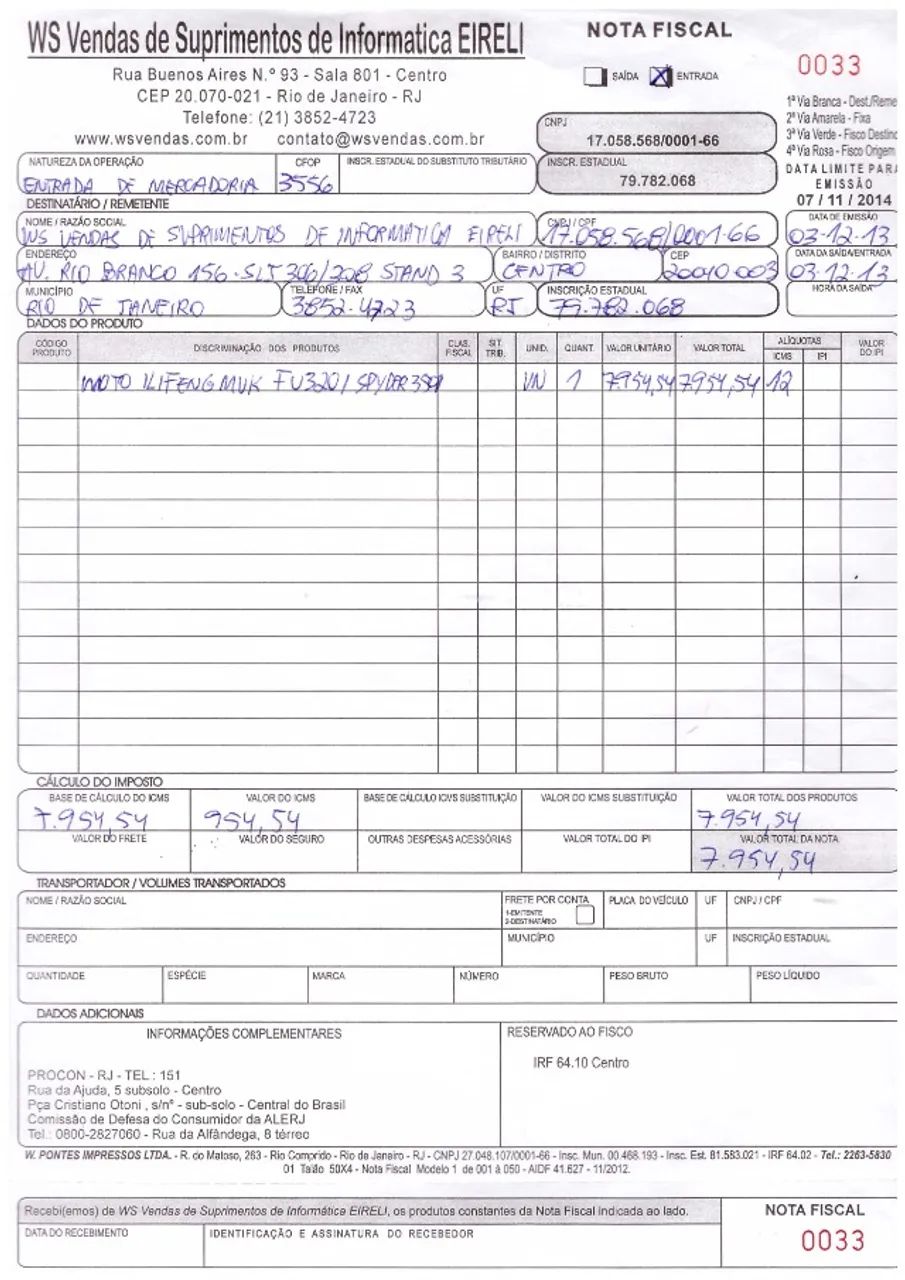 WS Vendas de Suprimentos de Informatica EIRELI
Rua Buenos Aires N.º 93 - Sala 801 - Centro
CEP 20.070-021 - Rio de Janeiro - RJ
Telefone: (21) 3852-4723
www.wsvendas.com.br contato@wsvendas.com.br
NOTA FISCAL
SAÍDA X ENTRADA
0033
1ª Via Branca - Dest./Reme
2ª Via Amarela - Fixa
3ª Via Verde - Fisco Destino
4ª Via Rosa - Fisco Origem
DATA LIMITE PARA
EMISSÃO
07 / 11 / 2014
CNPJ
17.058.568/0001-66
INSCR. ESTADUAL
79.782.068
NATUREZA DA OPERAÇÃO CFOP INSCR. ESTADUAL DO SUBSTITUTO TRIBUTÁRIO
ENTRADA DE MERCADORIA 3556
DESTINATÁRIO / REMETENTE
NOME / RAZÃO SOCIAL CNPJ / CPF DATA DE EMISSÃO
WS VENDAS DE SUPRIMENTOS DE INFORMATICA EIRELI 17.058.568/0001-66 03-12-13
ENDEREÇO BAIRRO / DISTRITO CEP DATA DA SAÍDA/ENTRADA
AV. RIO BRANCO 156 - SLJ 306/208 STAND 3 CENTRO 20040 003 03-12-13
MUNICÍPIO TELEFONE / FAX UF INSCRIÇÃO ESTADUAL HORA DA SAÍDA
RIO DE JANEIRO 3852-4723 RJ 79.782.068
DADOS DO PRODUTO
CÓDIGO PRODUTO DISCRIMINAÇÃO DOS PRODUTOS CLAS. FISCAL SIT. TRIB. UNID. QUANT. VALOR UNITÁRIO VALOR TOTAL ALÍQUOTAS ICMS IPI VALOR DO IPI
MOTO SPYDER UN 1 7.954,54 7.954,54 12
CÁLCULO DO IMPOSTO
BASE DE CÁLCULO DO ICMS VALOR DO ICMS BASE DE CÁLCULO ICMS SUBSTITUIÇÃO VALOR DO ICMS SUBSTITUIÇÃO VALOR TOTAL DOS PRODUTOS
7.954,54 954,54 7.954,54
VALOR DO FRETE VALOR DO SEGURO OUTRAS DESPESAS ACESSÓRIAS VALOR TOTAL DO IPI VALOR TOTAL DA NOTA
7.954,54
TRANSPORTADOR / VOLUMES TRANSPORTADOS
NOME / RAZÃO SOCIAL FRETE POR CONTA PLACA DO VEÍCULO UF CNPJ / CPF
1-EMITENTE
2-DESTINATÁRIO
ENDEREÇO MUNICÍPIO UF INSCRIÇÃO ESTADUAL
QUANTIDADE ESPÉCIE MARCA NÚMERO PESO BRUTO PESO LÍQUIDO
DADOS ADICIONAIS
INFORMAÇÕES COMPLEMENTARES
PROCON - RJ - TEL : 151
Rua da Ajuda, 5 subsolo - Centro
Pça Cristiano Otoni , s/nº - sub-solo - Central do Brasil
Comissão de Defesa do Consumidor da ALERJ
Tel.: 0800-2827060 - Rua da Alfândega, 8 térreo
RESERVADO AO FISCO
IRF 64.10 Centro
W. PONTES IMPRESSOS LTDA. - R. do Matoso, 263 - Rio Comprido - Rio de Janeiro - RJ - CNPJ 27.048.107/0001-66 - Insc. Mun. 00.468.193 - Insc. Est. 81.583.021 - IRF 64.02 - Tel.: 2263-5830
01 Talão 50X4 - Nota Fiscal Modelo 1 de 001 à 050 - AIDF 41.627 - 11/2012.
Recebi(emos) de WS Vendas de Suprimentos de Informática EIRELI, os produtos constantes da Nota Fiscal indicada ao lado.
DATA DO RECEBIMENTO IDENTIFICAÇÃO E ASSINATURA DO RECEBEDOR
NOTA FISCAL
0033